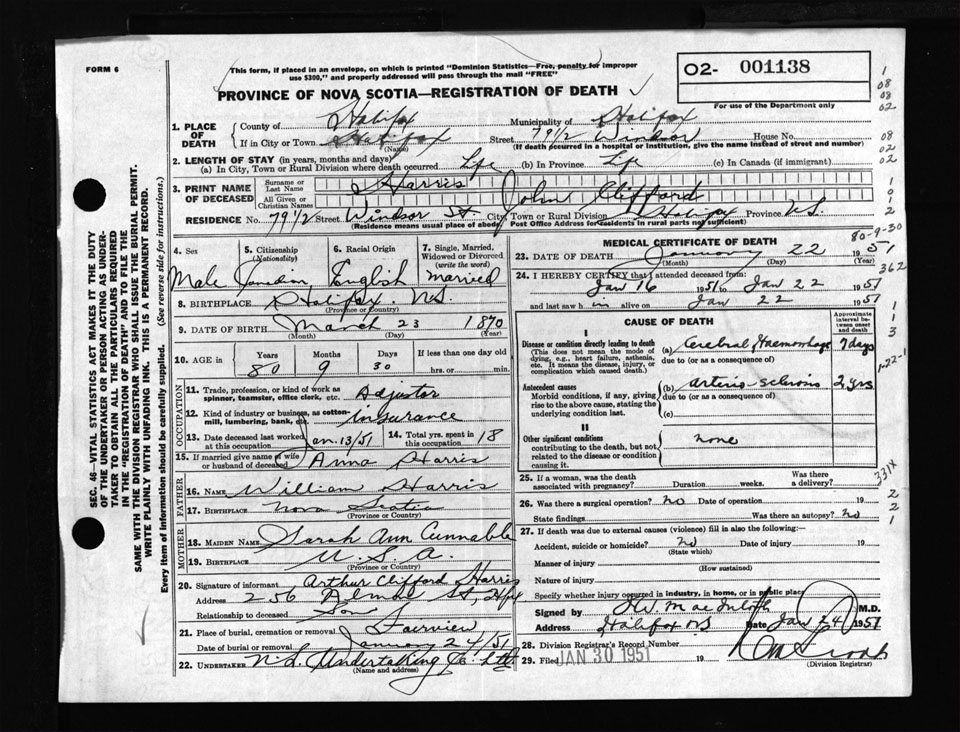 FORM 6
This form, if placed in an envelope, on which is printed "Dominion Statistics—Free, penalty for improper
use $300," and properly addressed will pass through the mail "FREE"
O2- 001138
For use of the Department only
PROVINCE OF NOVA SCOTIA—REGISTRATION OF DEATH
1. PLACE OF DEATH
County of Halifax Municipality of Halifax
If in City or Town Halifax Street 79 1/2 Windsor House No.
(Name) (If death occurred in a hospital or institution, give the name instead of street and number)
2. LENGTH OF STAY (in years, months and days)
(a) In City, Town or Rural Division where death occurred Life (b) In Province Life (c) In Canada (if immigrant)
3. PRINT NAME OF DECEASED
Surname or Last Name Harris
All Given or Christian Names John Clifford
RESIDENCE No. 79 1/2 Street Windsor St. City, Town or Rural Division Halifax Province N.S.
(Residence means usual place of abode, Post Office Address for residents in rural parts not sufficient)
4. Sex Male
5. Citizenship (Nationality) Canadian
6. Racial Origin English
7. Single, Married, Widowed or Divorced (write the word) Married
8. BIRTHPLACE Halifax. N.S.
(Province or Country)
9. DATE OF BIRTH March 23 1870
(Month) (Day) (Year)
10. AGE in Years Months Days If less than one day old
80 9 30 hrs. or min.
OCCUPATION
11. Trade, profession, or kind of work as spinner, teamster, office clerk, etc. Adjustor
12. Kind of industry or business, as cotton-mill, lumbering, bank, etc. Insurance
13. Date deceased last worked at this occupation Jan. 13/51 14. Total yrs. spent in this occupation 18
15. If married give name of wife or husband of deceased Anna Harris
FATHER
16. NAME William Harris
17. BIRTHPLACE Nova Scotia
(Province or Country)
MOTHER
18. MAIDEN NAME Sarah Ann Cunnabla
19. BIRTHPLACE U.S.A.
(Province or Country)
20. Signature of informant Arthur Clifford Harris
Address 256 St, Hfx
Relationship to deceased Son
21. Place of burial, cremation or removal Fairview
Date of burial or removal January 24/51
22. UNDERTAKER N.S. Undertaking Co. Ltd
(Name and address)
MEDICAL CERTIFICATE OF DEATH
23. DATE OF DEATH January 22 1951
(Month) (Day)
24. I HEREBY CERTIFY that I attended deceased from:
Jan 16 1951 to Jan 22 1951
and last saw him alive on Jan 22 1951
CAUSE OF DEATH
Approximate interval between onset and death
I
Disease or condition directly leading to death
(This does not mean the mode of dying, e.g., heart failure, asthenia, etc. It means the disease, injury, or complication which caused death.)
(a) Cerebral Haemorrhage 7 days
due to (or as a consequence of)
Antecedent causes
Morbid conditions, if any, giving rise to the above cause, stating the underlying condition last.
(b) arterio-sclerosis 2 yrs
due to (or as a consequence of)
(c)
II
Other significant conditions
contributing to the death, but not related to the disease or condition causing it.
none
25. If a woman, was the death associated with pregnancy? Duration weeks. Was there a delivery?
26. Was there a surgical operation? No Date of operation 19
State findings Was there an autopsy? No
27. If death was due to external causes (violence) fill in also the following:—
Accident, suicide or homicide? No Date of injury 19
(State which)
Manner of injury
(How sustained)
Nature of injury
Specify whether injury occurred in industry, in home, or in public place
Signed by M.D.
Address Halifax NS Date Jan 24 1951
28. Division Registrar's Record Number
29. Filed JAN 30 1951 19
(Division Registrar)
SEC. 46—VITAL STATISTICS ACT MAKES IT THE DUTY
OF THE UNDERTAKER OR PERSON ACTING AS UNDER-
TAKER TO OBTAIN ALL THE PARTICULARS REQUIRED
IN THE "REGISTRATION OF DEATH" AND TO FILE THE
SAME WITH THE DIVISION REGISTRAR WHO SHALL ISSUE THE BURIAL PERMIT.
WRITE PLAINLY WITH UNFADING INK. THIS IS A PERMANENT RECORD.
Every item of information should be carefully supplied. (See reverse side for instructions.)
1
08
08
02
08
02
02
1
0
1
2
80-9-30
362
1
1
3
1-22-1
331X
2
2
1